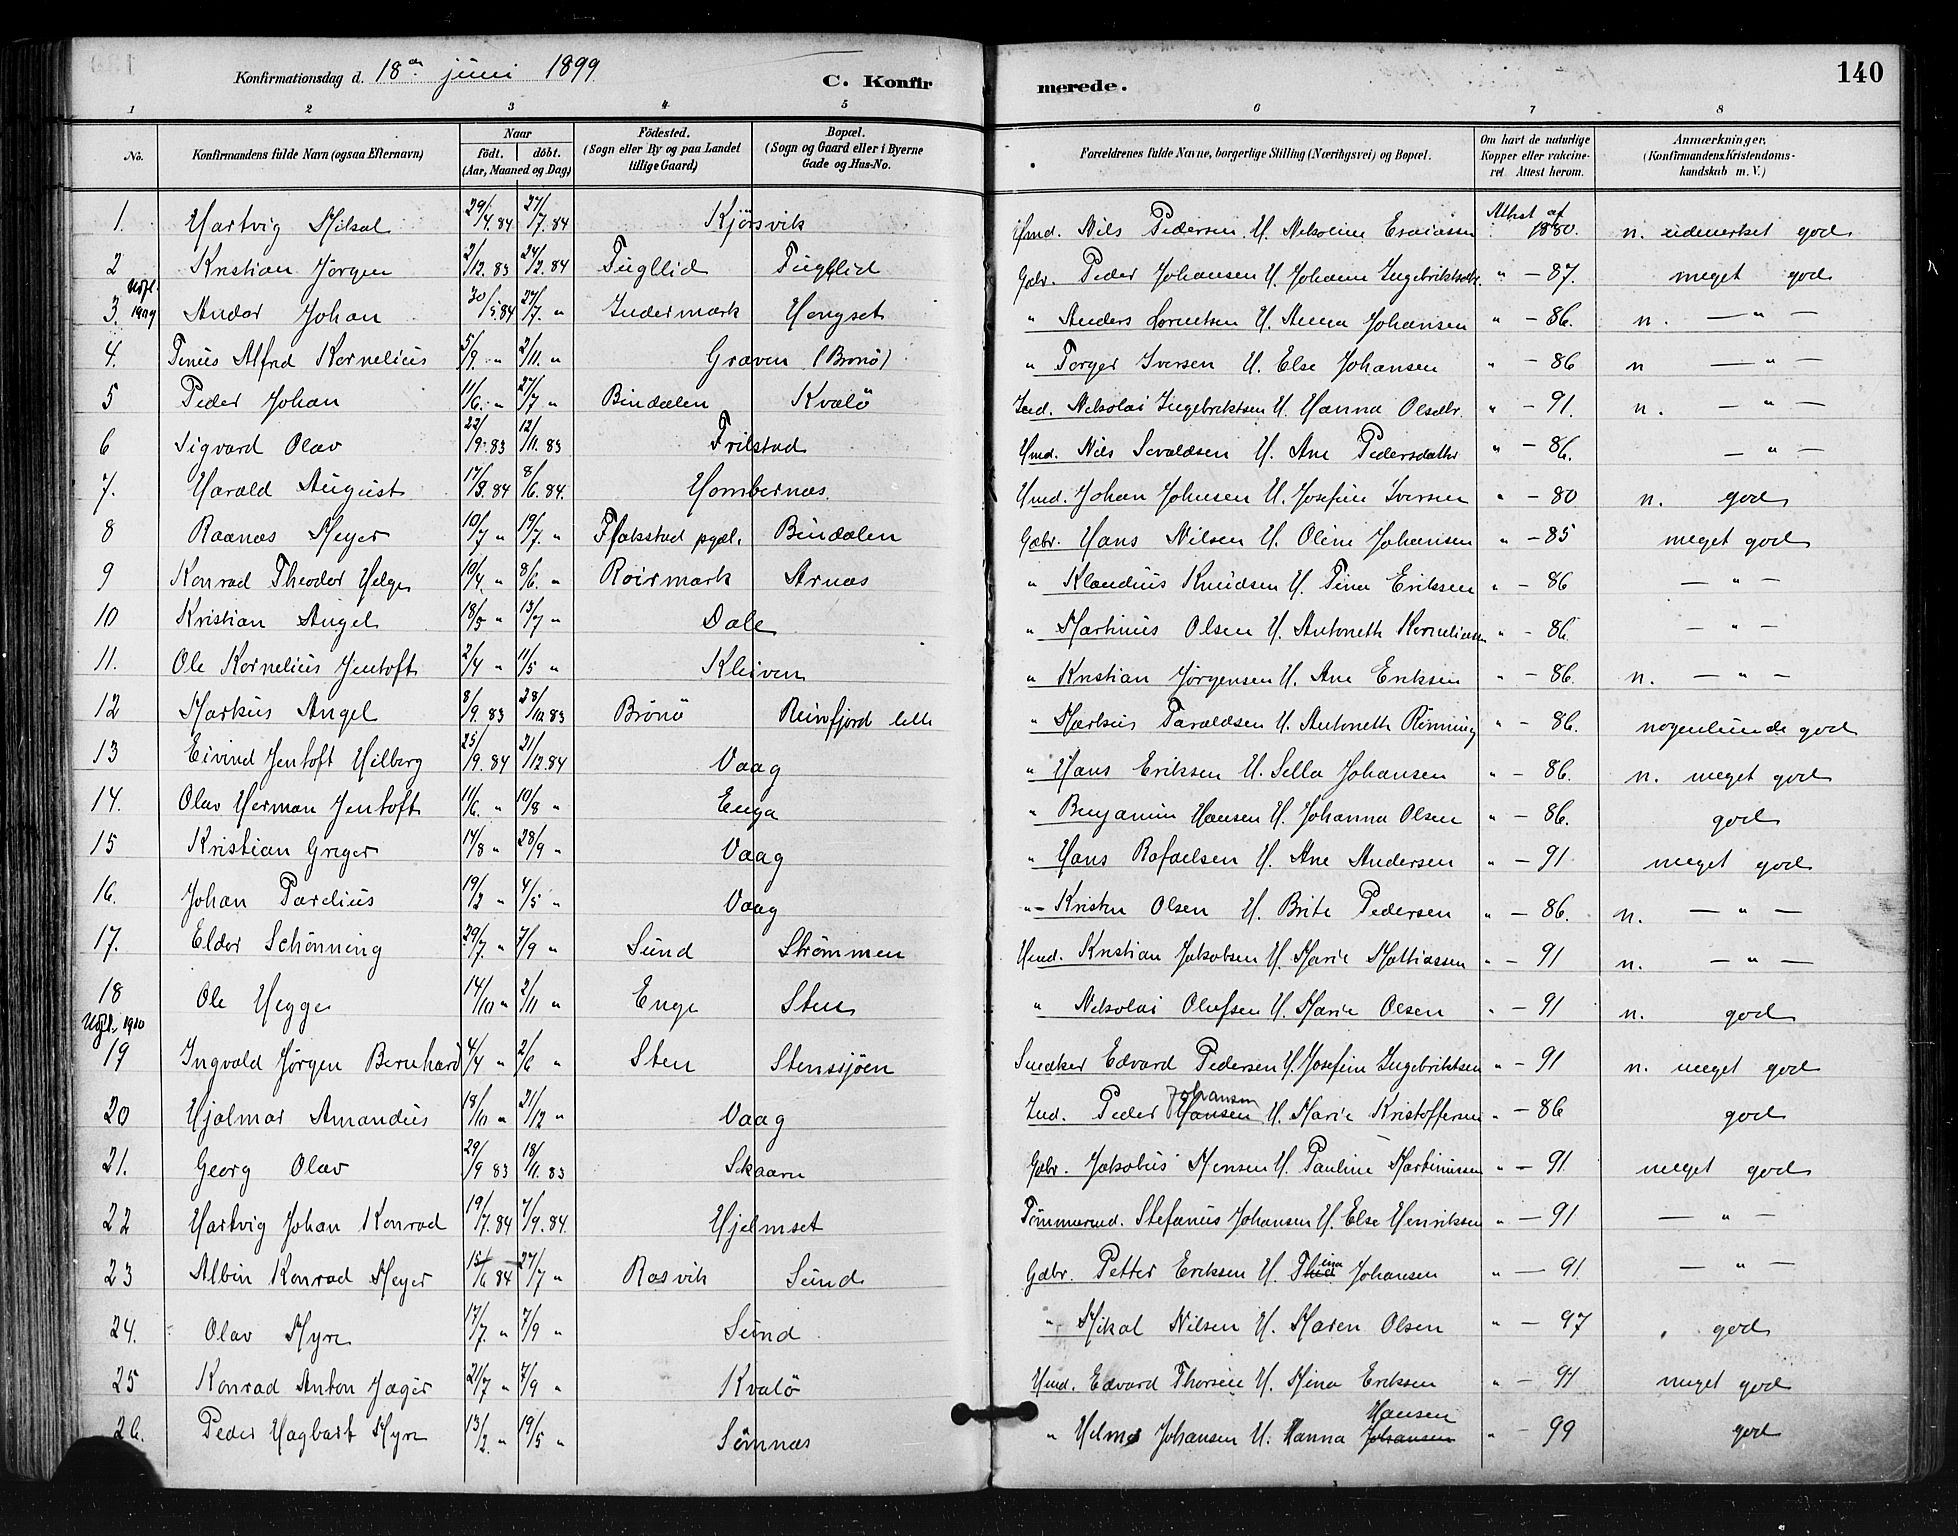 Konfirmationsdag d. 18de juni 1899.
C. Konfirmerede.
140
1 2 3 4 5 6 7 8
No.
Konfirmandens fulde Navn (ogsaa Efternavn)
Naar födt. döbt. (Aar, Maaned og Dag)
Födested. (Sogn eller By og paa Landet tillige Gaard)
Bopæl. (Sogn og Gaard eller i Byerne Gade og Hus-No.
Forældrenes fulde Navne, borgerlige Stilling (Næringsvei) og Bopæl.
Om havt de naturlige Kopper eller vakcineret Attest herom.
Anmærkninger. (Konfirmandens Kristendomskundskab m. V.)
1. Hartvig Mikal 29/4.84 27/7.84 Kjørsvik Hmd. Nils Pedersen. H. Nikoline Esaiassen Attest af 1880. n. udmerket god
2 Kristian Jörgen 2/12.83 24/2.84 Fugllid Fugllid Gdbr. Peder Johansen H. Johanna Ingebriktsdtr. " - 87. meget god
3. 1909 Andor Johan 30/5.84 27/7. " Indermark Hongset " Anders H. Anna Johansen " - 86. n. - " -
4. Tenus Alfred Kornelius 5/9. " 2/11. " Graven (Brønø) " Torger Iversen H. Else Johansen " - 86 n - " -
5 Peder Johan 11/6. " 27/7 " Bindalen Kvalö Ind. Nikolai Ingebriktsen H. Hanna Olsdtr. " - 91. n. - " -
6 Sigvard Olav 22/9.83 12/11.83 Trilstad Hmd. Nils Sivaldsen H. Ane Pedersdatter " - 86. - " -
7. Harald August 17/3.84 8/6.84. Hombernæs. Hmd. Johan Johnsen H. Josefine Iversen " - 80 n. god
8 Raanas Meyer 10/7 " 19/7. " Flakstad pgjæl. Bindalen Gdbr. Hans Nilsen H. Oline Johansen " - 85 meget god
9 Konrad Theodor Helge 10/4. " 8/6. " Roirmark Arnæs " Klaudius Knudsen H. Tina Eriksen " - 86 - " -
10 Kristian Angel 18/5 " 13/7 " Dale " Martinus Olsen H. Antonette Korneliussen " - 86. - " -
11. Ole Kornelius Jentoft 2/4 " 11/5 " Kleiven " Kristian Jørgensen H. Ane Eriksen " - 86. n. - " -
12 Markus Angel 8/9.83 28/10.83 Brönö Reinfjord lille " Markus Taraldsen H. Antonette Rönning " - 86. nogenlunde god
13 Eivind Jentoft Hilberg 25/9.84 21/12.84 Vaag " Hans Eriksen H. Sella Johansen " - 86. n. meget god
14. Olav Herman Jentoft 11/6. " 10/8 " Enga " Benjamin Hansen H. Johanna Olsen " - 86. god
15 Kristian Greger 14/8 " 28/9 " Vaag " Hans Rafaelsen H. Ane Andersen " - 91 meget god
16. Johan Pardelius 19/2 " 4/5 " Vaag " Kristen Olsen H. Brite Pedersen " - 86. n. - " -
17. Eldor Schönning 29/7. " 7/9 " Sund Strømmen Hmd. Kristian Jakobsen H. Marie Mathiassen " - 91 n. - " -
18 Ole Hegge 14/10 " 2/11 " Enge Sten " Nikolai Olufsen H. Marie Olsen " - 91 n. god
1910
19 Ingvald Jørgen Bernhard 4/4 " 2/6 " Sten Stenssjöen Snedker Edvard Pedersen H. Josefine Ingebriktsen " - 91 n. meget god
20 Hjalmar Amandus 18/10 " 21/12 " Vaag Ind. Peder Hansen Johansen H. Marie Kristoffersen " - 86 god
21. Georg Olav 29/9 83 18/11.83 Skaarn Gdbr. Jakobus Monsen H. Pauline Martinussen " - 91 meget god
22 Hartvig Johan Konrad 19/7.84 7/9.84. Hjelmset Tømmermd. Stefanus Johansen H. Else Henriksen " - 91 - " -
23 Albin Konrad Meyer 15/6 84 27/7 " Rosvik Sund Gdbr. Petter Eriksen H. Thina Johansen " - 91 - " -
24. Olav Myre 17/7. " 7/9 " Sund " Mikal Nilsen H. Maren Olsen " - 97 god
25 Konrad Anton Jæger 21/7 " 7/9 " Kvalö Hmd. Edvard Thorsen H. Mina Eriksen " - 91 meget god
26. Peder Hagbart Myre 13/2. " 19/5 " Sömnæs " Helmer Johansen H. Hanna Johansen Hansen " - 99 god